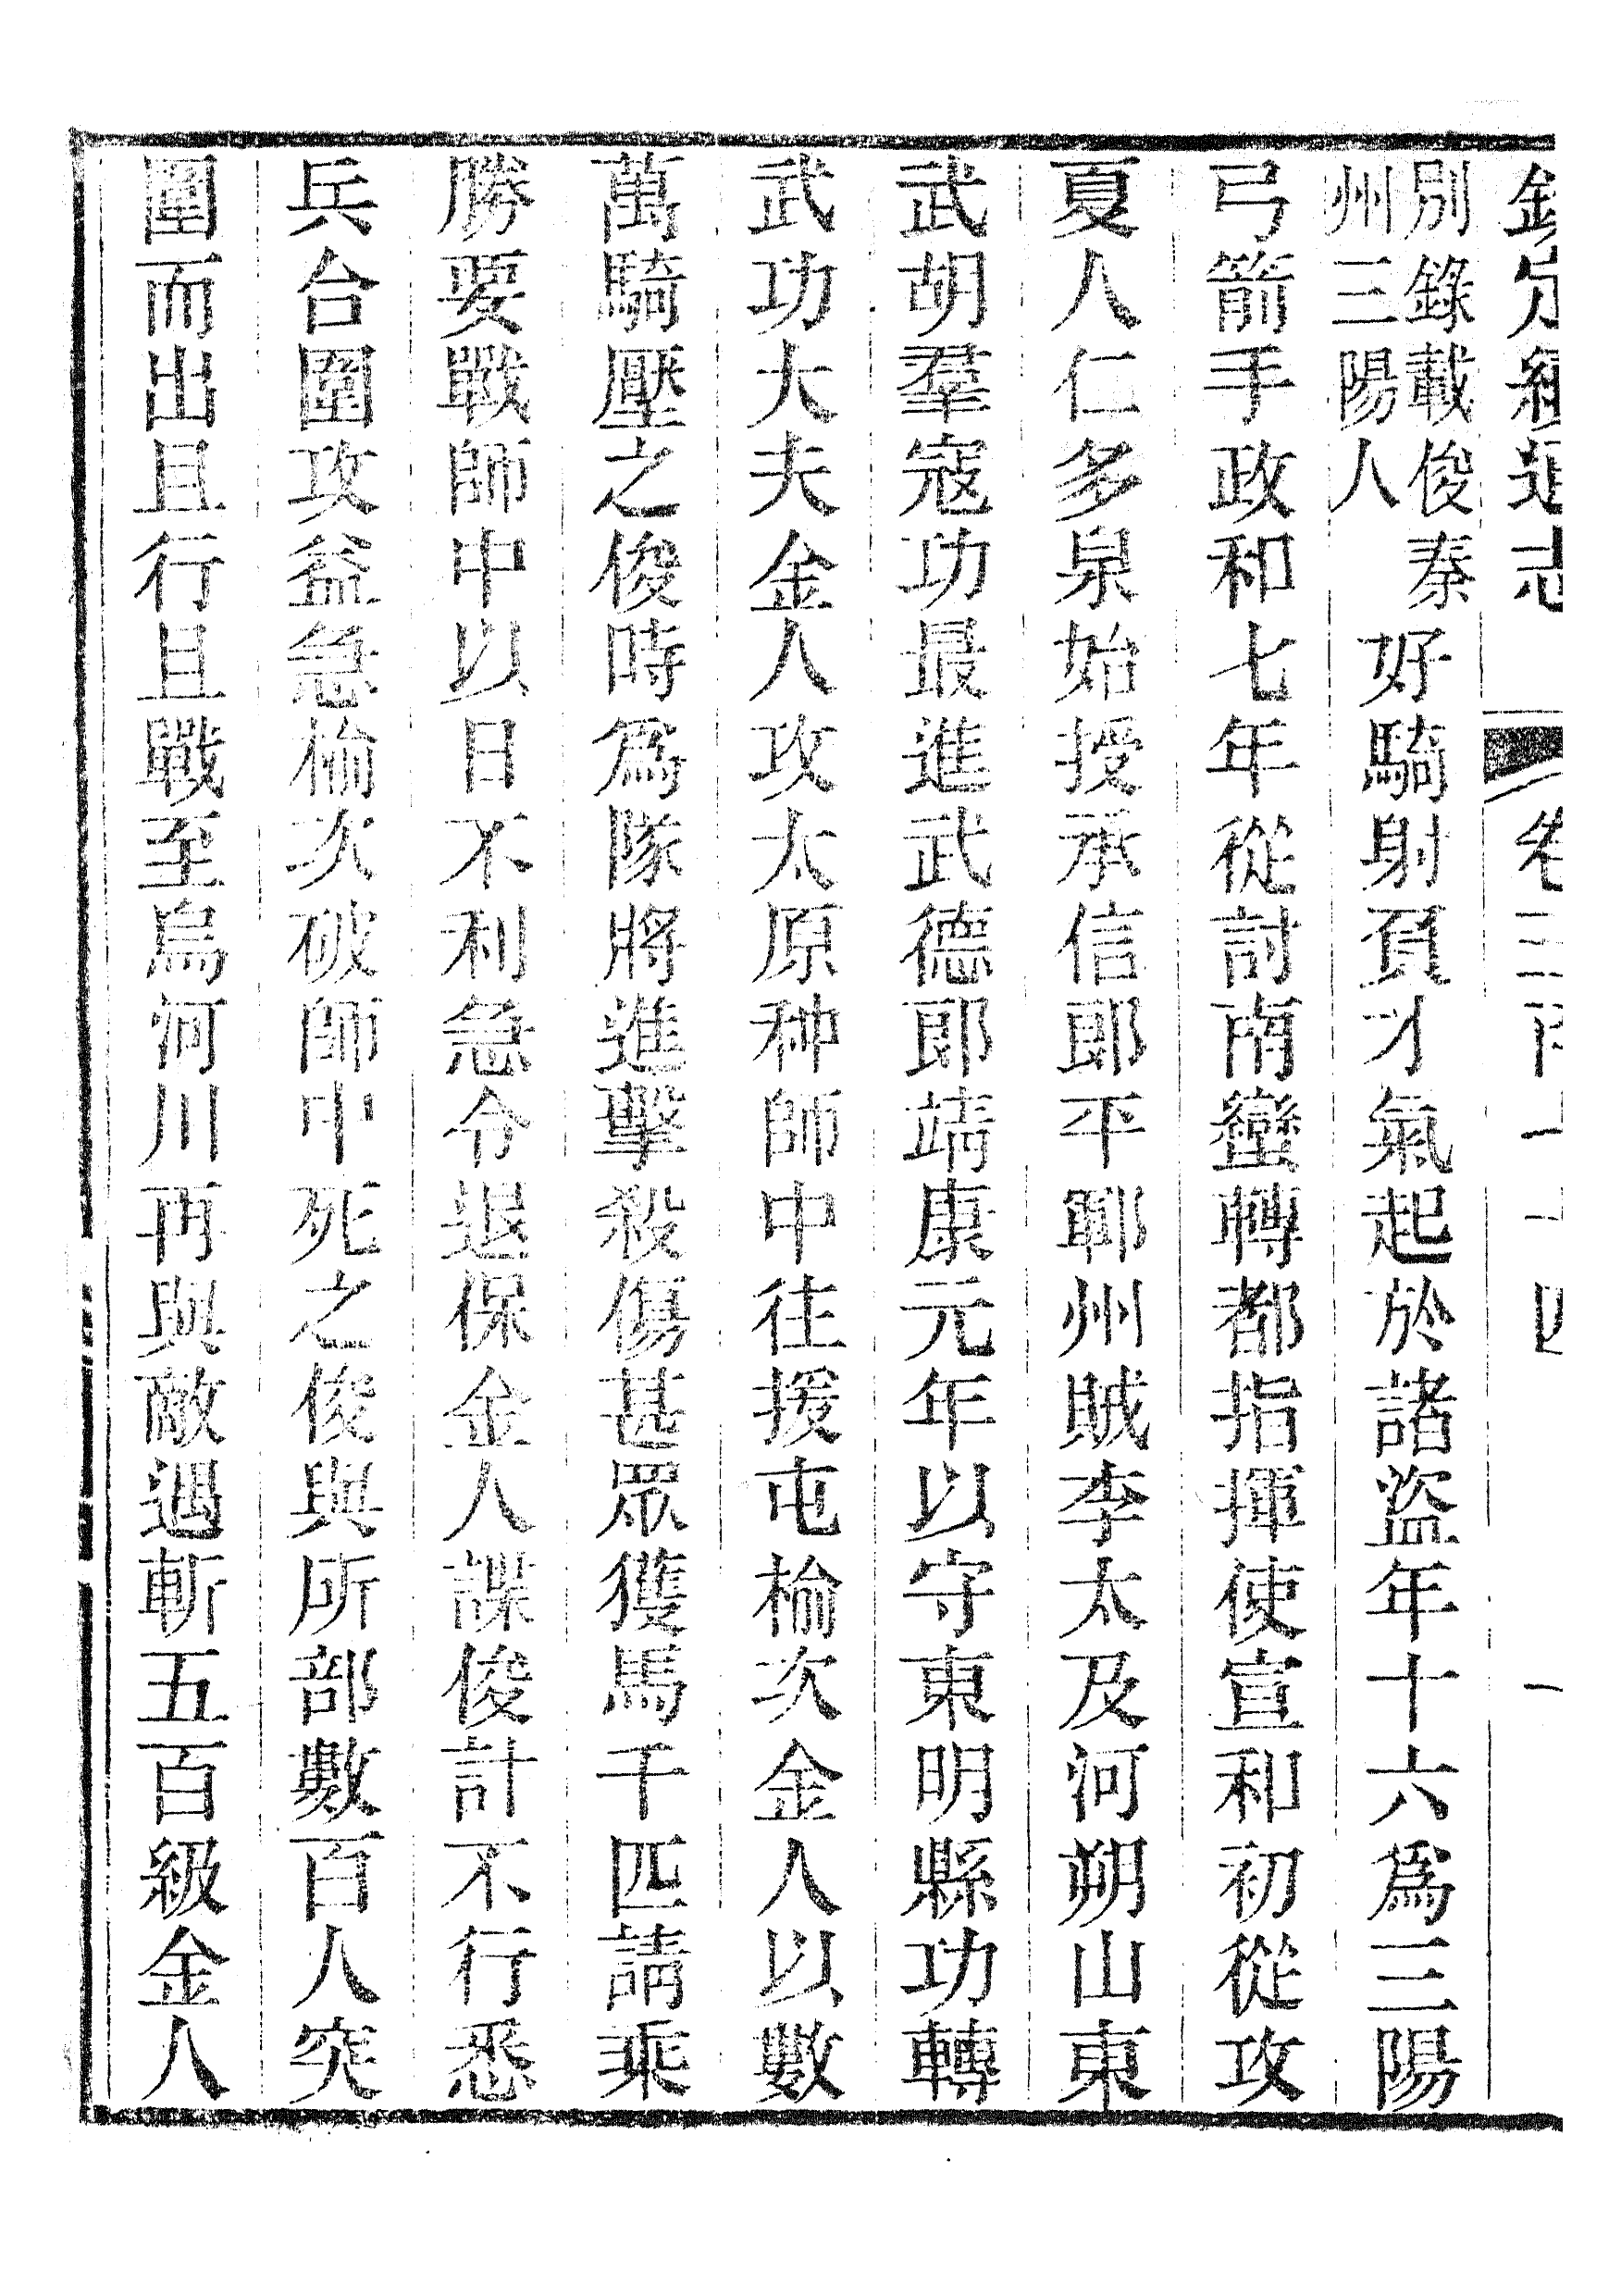 欽定續通志 卷三百 十四 一
別錄載俊秦
州三陽人
好騎射負才氣起於諸盜年十六為三陽
弓箭手政和七年從討南蠻轉都指揮使宣和初從攻
夏人仁多泉始授承信郎平鄆州賊李太及河朔山東
武胡羣寇功最進武德郎靖康元年以守東明縣功轉
武功大夫金人攻太原种師中往援屯榆次金人以數
萬騎壓之俊時為隊將進擊殺傷甚眾獲馬千匹請乘
勝要戰師中以日不利急令退保金人諜俊計不行悉
兵合圍攻益急榆次破師中死之俊與所部數百人突
圍而出且行且戰至烏河川再與敵遇斬五百級金人